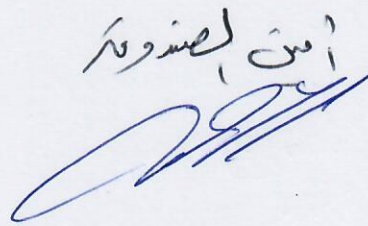 أمين الصندوق